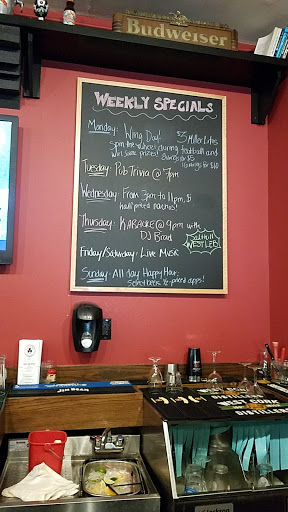 Budweiser
WEEKLY SPECIALS
Monday: Wing Day! $3 Miller Lites
Spin the wheel during football and
win some prizes!
Tuesday: Pub Trivia @ 7pm
Wednesday: From 3pm to 11pm,
half priced nachos!
Thursday: KARAOKE @ 9pm with
DJ Brad
Friday/Saturday: Live Music
Sunday: All day Happy Hour:
Select beers, ½ priced apps!
WEST CORK
DISTILLERS